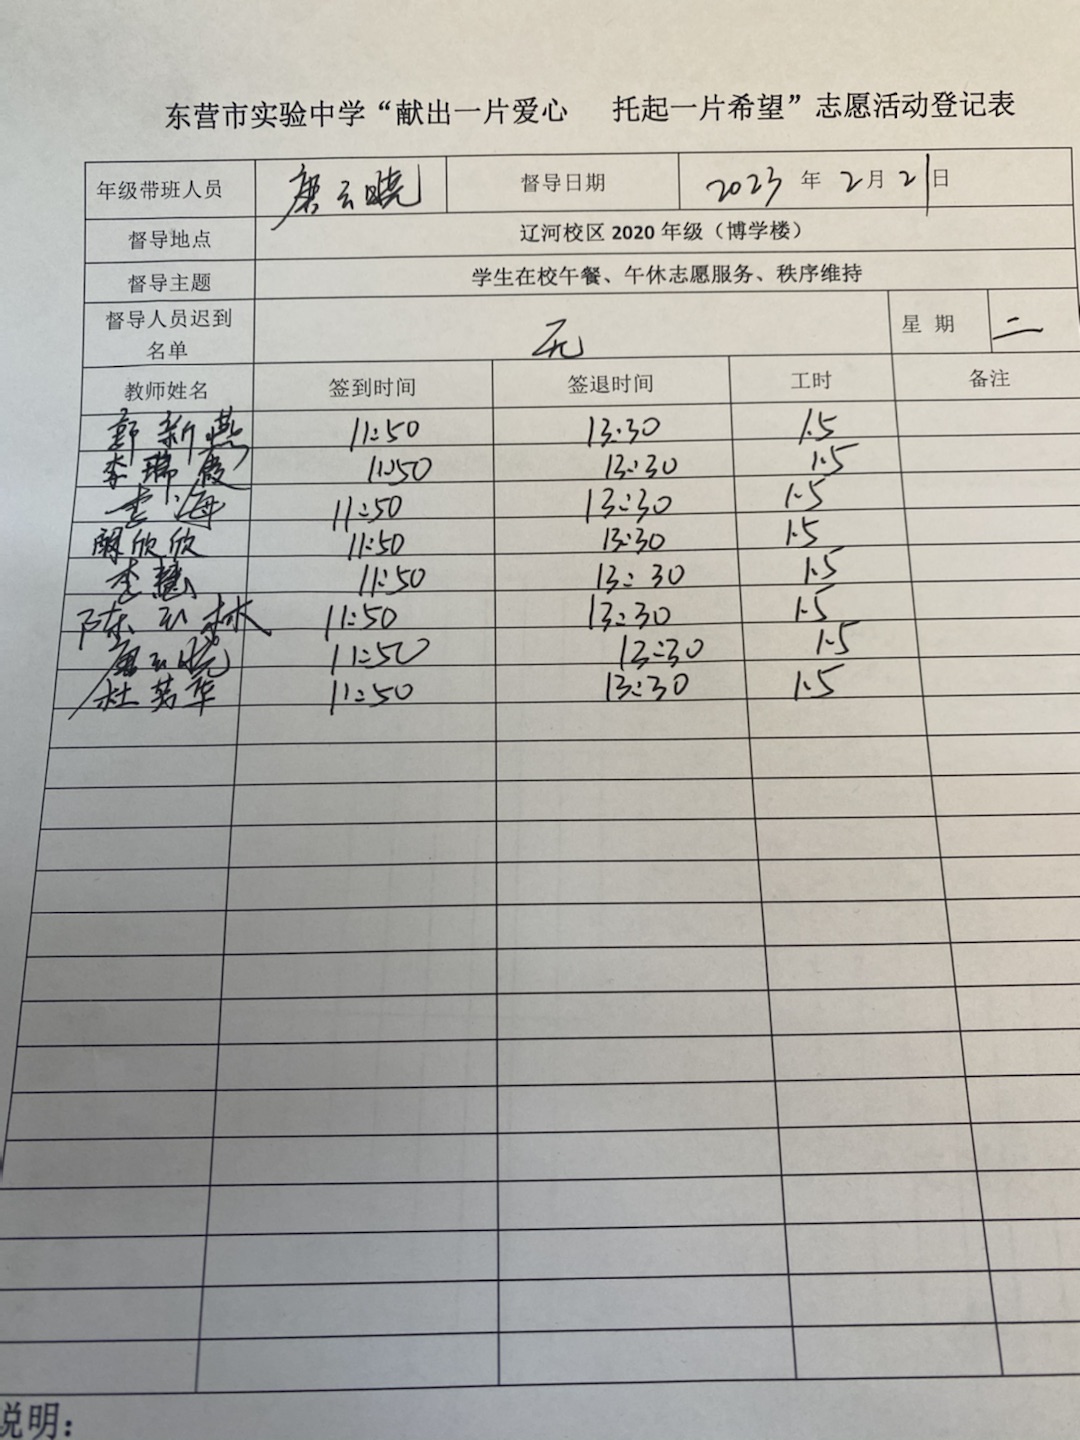 东营市实验中学“献出一片爱心 托起一片希望”志愿活动登记表
年级带班人员 唐云晓 督导日期 2023 年 2 月 21 日
督导地点 辽河校区 2020 年级（博学楼）
督导主题 学生在校午餐、午休志愿服务、秩序维持
督导人员迟到名单 无 星期 二
教师姓名 签到时间 签退时间 工时 备注
郭新燕 11:50 13:30 1.5
李瑞霞 11:50 13:30 1.5
李海 11:50 13:30 1.5
欣欣 11:50 13:30 1.5
李慧 11:50 13:30 1.5
陈云林 11:50 13:30 1.5
唐云晓 11:50 13:30 1.5
杜华 11:50 13:30 1.5
说明：